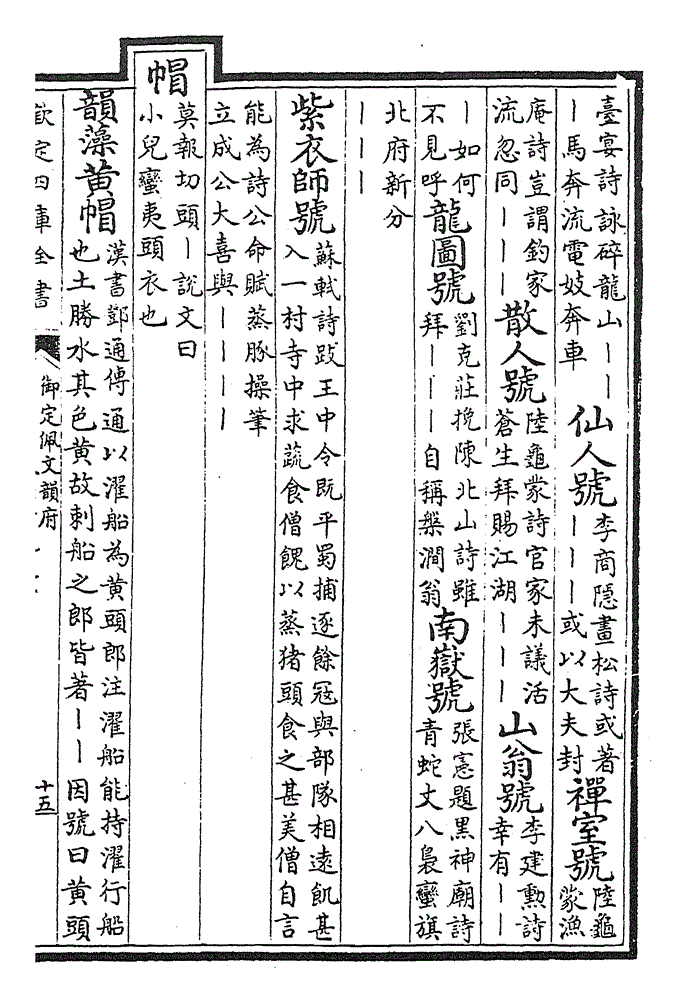 臺宴詩詠碎龍山｜｜｜馬奔流電妓奔車仙人號李商隱畫松詩或著｜｜｜或以大夫封禪室號陸龜蒙漁
庵詩豈謂釣家流忽同｜｜｜散人號陸龜蒙詩官家未議活蒼生拜賜江湖｜｜｜山翁號李建勳詩幸有｜｜
｜如何不見呼龍圖號劉克莊挽陳北山詩雖拜｜｜｜自稱槃澗翁南嶽號張憲題黑神廟詩青蛇丈八裊蠻旗
北府新分｜｜｜
紫衣師號蘇軾詩跋王中令既平蜀捕逐餘冦與部隊相遠飢甚入一村寺中求蔬食僧餽以蒸猪頭食之甚美僧自言
能為詩公命賦蒸豚操筆立成公大喜與｜｜｜｜
帽莫報切頭｜說文曰小兒蠻夷頭衣也
韻藻黄帽漢書鄧通傳通以濯船為黄頭郎注濯船能持濯行船也土勝水其色黄故刺船之郎皆著｜｜因號曰黄頭
欽定四庫全書 御定佩文韻府 十五